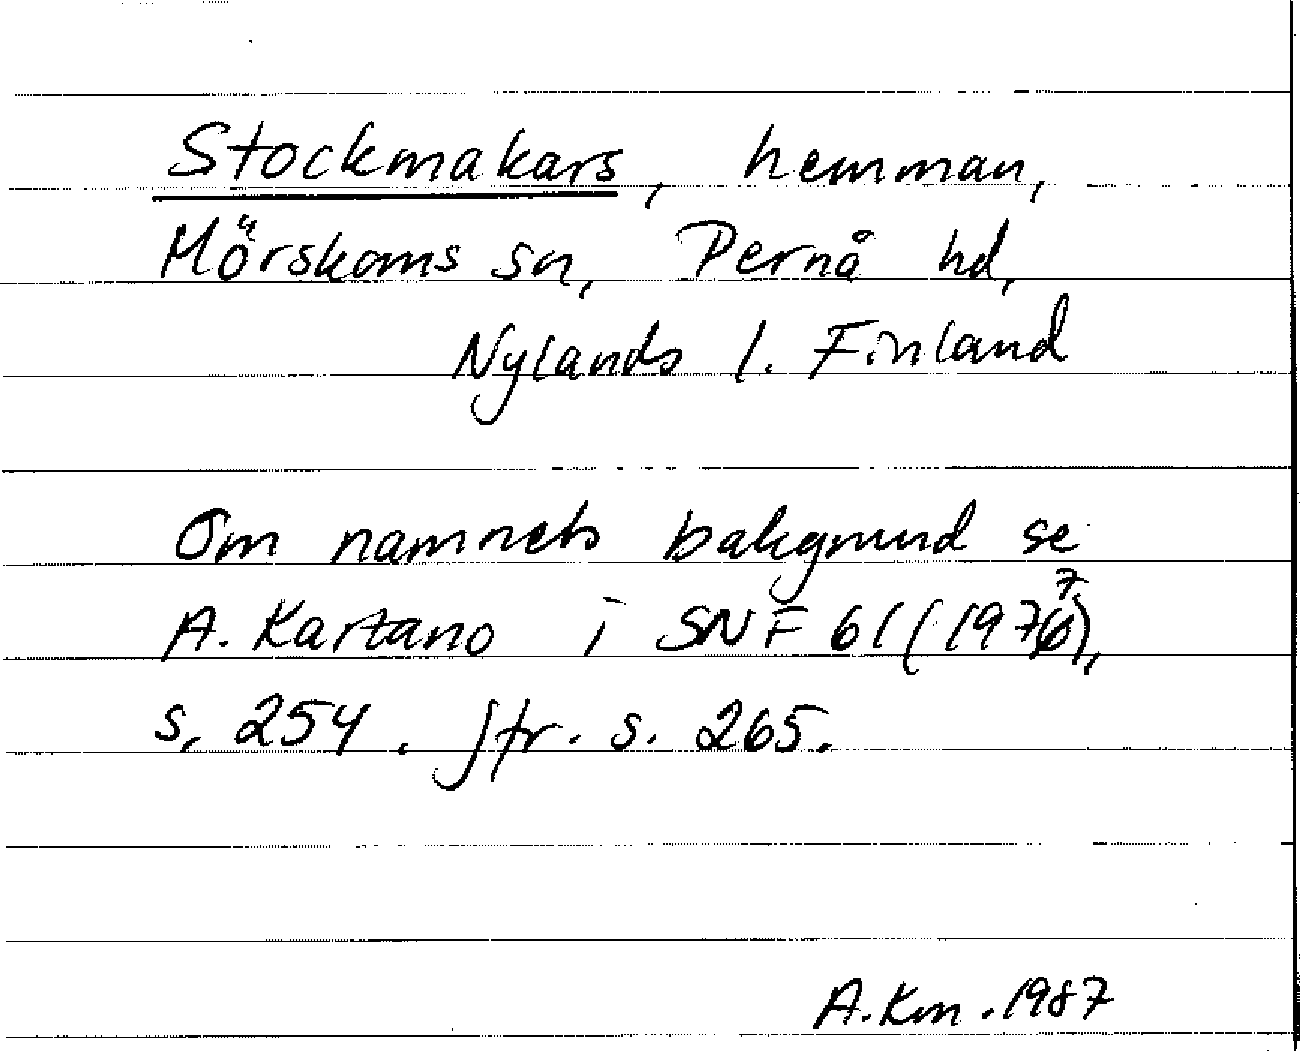 Stockmakars, hemman,
Mörskoms sn, Pernå hd,
Nylands l. Finland
Om namnets bakgrund se
A. Kartano i SNF 61 (1977),
s. 254. Jfr. s. 265.
A. Km. 1987